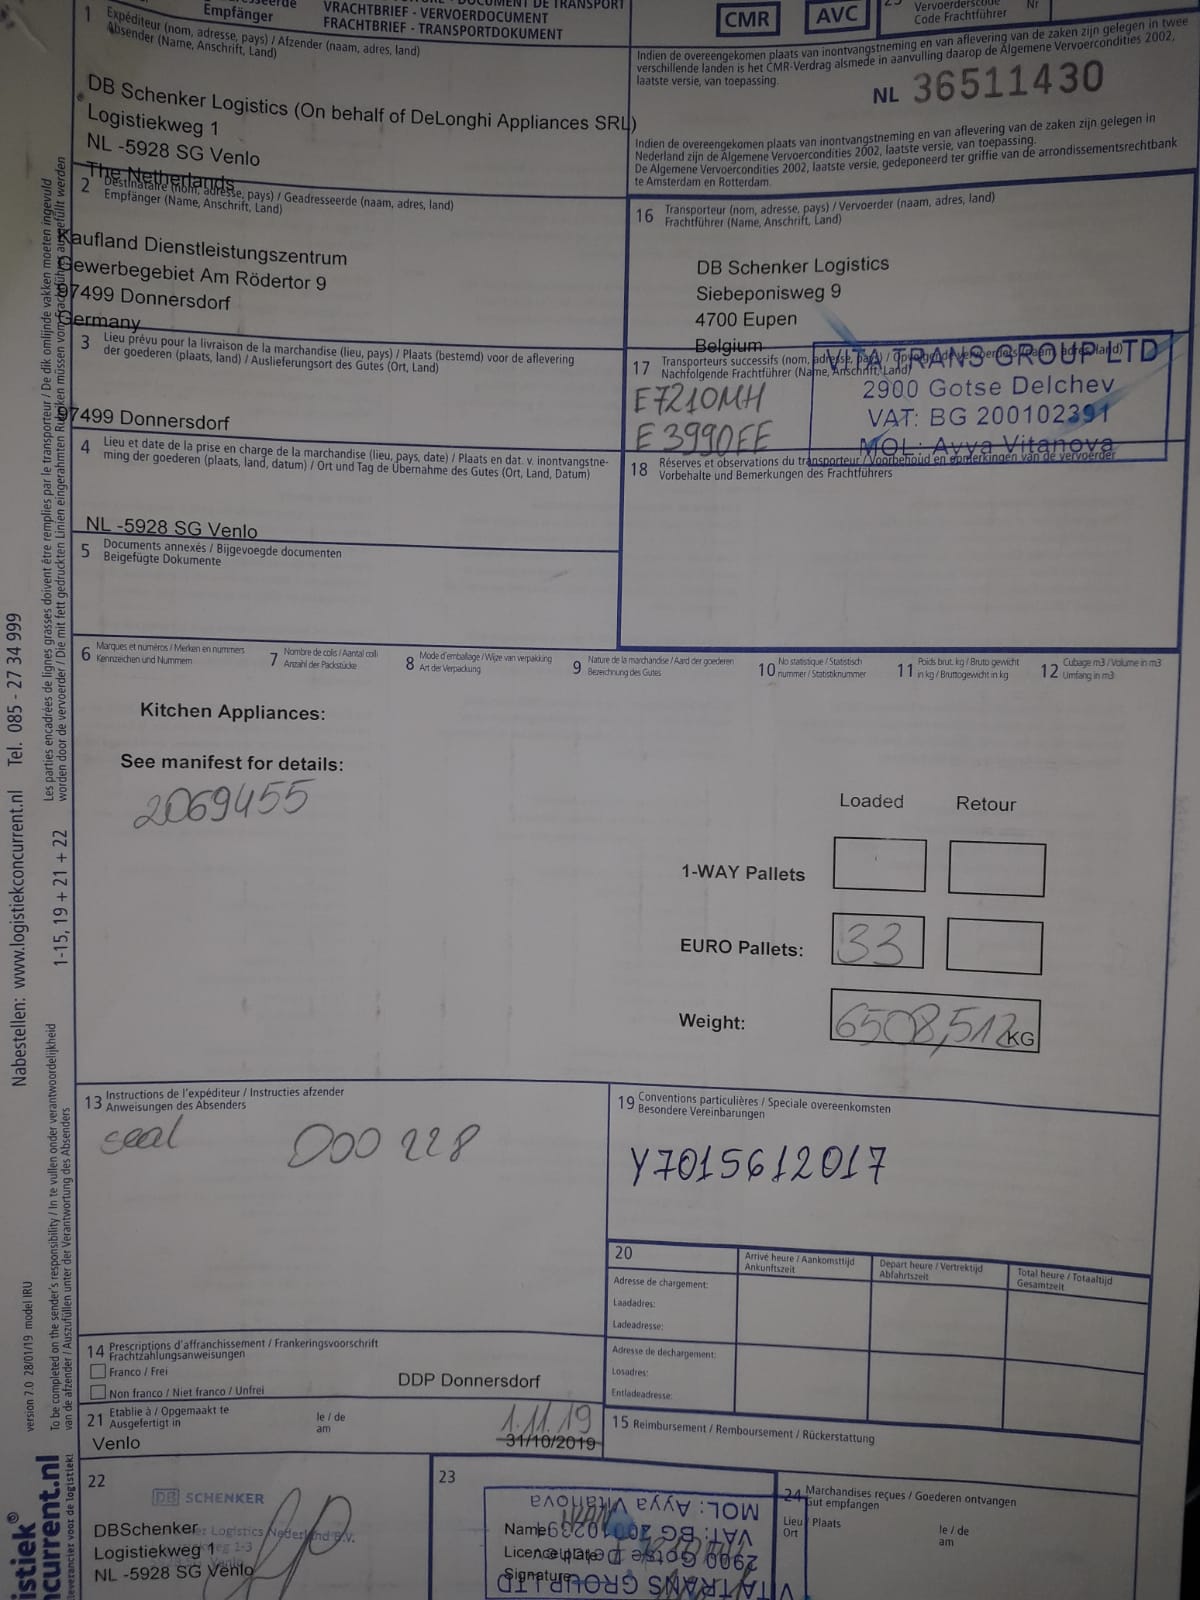 Empfänger
VRACHTBRIEF - VERVOERDOCUMENT
FRACHTBRIEF - TRANSPORTDOKUMENT
CMR
AVC
Vervoerderscode
Code Frachtführer
Nr
1 Expéditeur (nom, adresse, pays) / Afzender (naam, adres, land)
Absender (Name, Anschrift, Land)
DB Schenker Logistics (On behalf of DeLonghi Appliances SRL)
Logistiekweg 1
NL -5928 SG Venlo
The Netherlands
Indien de overeengekomen plaats van inontvangstneming en van aflevering van de zaken zijn gelegen in twee
verschillende landen is het CMR-Verdrag alsmede in aanvulling daarop de Algemene Vervoercondities 2002,
laatste versie, van toepassing.
NL 36511430
Indien de overeengekomen plaats van inontvangstneming en van aflevering van de zaken zijn gelegen in
Nederland zijn de Algemene Vervoercondities 2002, laatste versie, van toepassing.
De Algemene Vervoercondities 2002, laatste versie, gedeponeerd ter griffie van de arrondissementsrechtbank
te Amsterdam en Rotterdam.
2 Destinataire (nom, adresse, pays) / Geadresseerde (naam, adres, land)
Empfänger (Name, Anschrift, Land)
Kaufland Dienstleistungszentrum
Gewerbegebiet Am Rödertor 9
97499 Donnersdorf
Germany
16 Transporteur (nom, adresse, pays) / Vervoerder (naam, adres, land)
Frachtführer (Name, Anschrift, Land)
DB Schenker Logistics
Siebeponisweg 9
4700 Eupen
Belgium
3 Lieu prévu pour la livraison de la marchandise (lieu, pays) / Plaats (bestemd) voor de aflevering
der goederen (plaats, land) / Auslieferungsort des Gutes (Ort, Land)
97499 Donnersdorf
17 Transporteurs successifs (nom, adresse, pays) / Opvolgende vervoerders (naam, adres, land)
Nachfolgende Frachtführer (Name, Anschrift, Land)
E7210MH
E3990EE
VITA TRANS GROUP LTD
2900 Gotse Delchev
VAT: BG 200102391
MOL: Ayya Vitanova
4 Lieu et date de la prise en charge de la marchandise (lieu, pays, date) / Plaats en dat. v. inontvangstne-
ming der goederen (plaats, land, datum) / Ort und Tag de Übernahme des Gutes (Ort, Land, Datum)
NL -5928 SG Venlo
18 Réserves et observations du transporteur / Voorbehoud en opmerkingen van de vervoerder
Vorbehalte und Bemerkungen des Frachtführers
5 Documents annexés / Bijgevoegde documenten
Beigefügte Dokumente
6 Marques et numéros / Merken en nummers
Kennzeichen und Nummern
7 Nombre de colis / Aantal colli
Anzahl der Packstücke
8 Mode d'emballage / Wijze van verpakking
Art der Verpackung
9 Nature de la marchandise / Aard der goederen
Bezeichnung des Gutes
10 No statistique / Statistisch
nummer / Statistiknummer
11 Poids brut. kg / Bruto gewicht
in kg / Bruttogewicht in kg
12 Cubage m3 / Volume in m3
Umfang in m3
Kitchen Appliances:
See manifest for details:
2069455
Loaded Retour
1-WAY Pallets
EURO Pallets: 33
Weight: 6508,512 KG
13 Instructions de l'expéditeur / Instructies afzender
Anweisungen des Absenders
seal 000 228
19 Conventions particulières / Speciale overeenkomsten
Besondere Vereinbarungen
Y7015612017
20
Arrivé heure / Aankomsttijd
Ankunftszeit
Depart heure / Vertrektijd
Abfahrtszeit
Total heure / Totaaltijd
Gesamtzeit
Adresse de chargement:
Laadadres:
Ladeadresse:
Adresse de dechargement:
Losadres:
Entladeadresse:
14 Prescriptions d'affranchissement / Frankeringsvoorschrift
Frachtzahlungsanweisungen
Franco / Frei
Non franco / Niet franco / Unfrei
DDP Donnersdorf
21 Etablie à / Opgemaakt te
Ausgefertigt in
le / de
am
Venlo
1.11.19
31/10/2019
15 Reimbursement / Remboursement / Rückerstattung
22
DB SCHENKER
DBSchenker
Logistiekweg 1
NL -5928 SG Venlo
23
MOL: Ayya Vitanova
VAT: BG 200102391
2900 Gotse Delchev
VITA TRANS GROUP LTD
Name
Licence plate
Signature
24 Marchandises reçues / Goederen ontvangen
Gut empfangen
Lieu / Plaats
Ort
le / de
am
Nabestellen: www.logistiekconcurrent.nl Tel. 085 - 27 34 999
Les parties encadrées de lignes grasses doivent être remplies par le transporteur / De dik omlijnde vakken moeten ingevuld
worden door de vervoerder / Die mit fett gedruckten Linien eingerahmten Rubriken müssen vom Frachtführer ausgefüllt werden
1-15, 19 + 21 + 22
To be completed on the sender's responsibility / In te vullen onder verantwoordelijkheid
van de afzender / Auszufüllen unter der Verantwortung des Absenders
version 7.0 28/01/19 model IRU